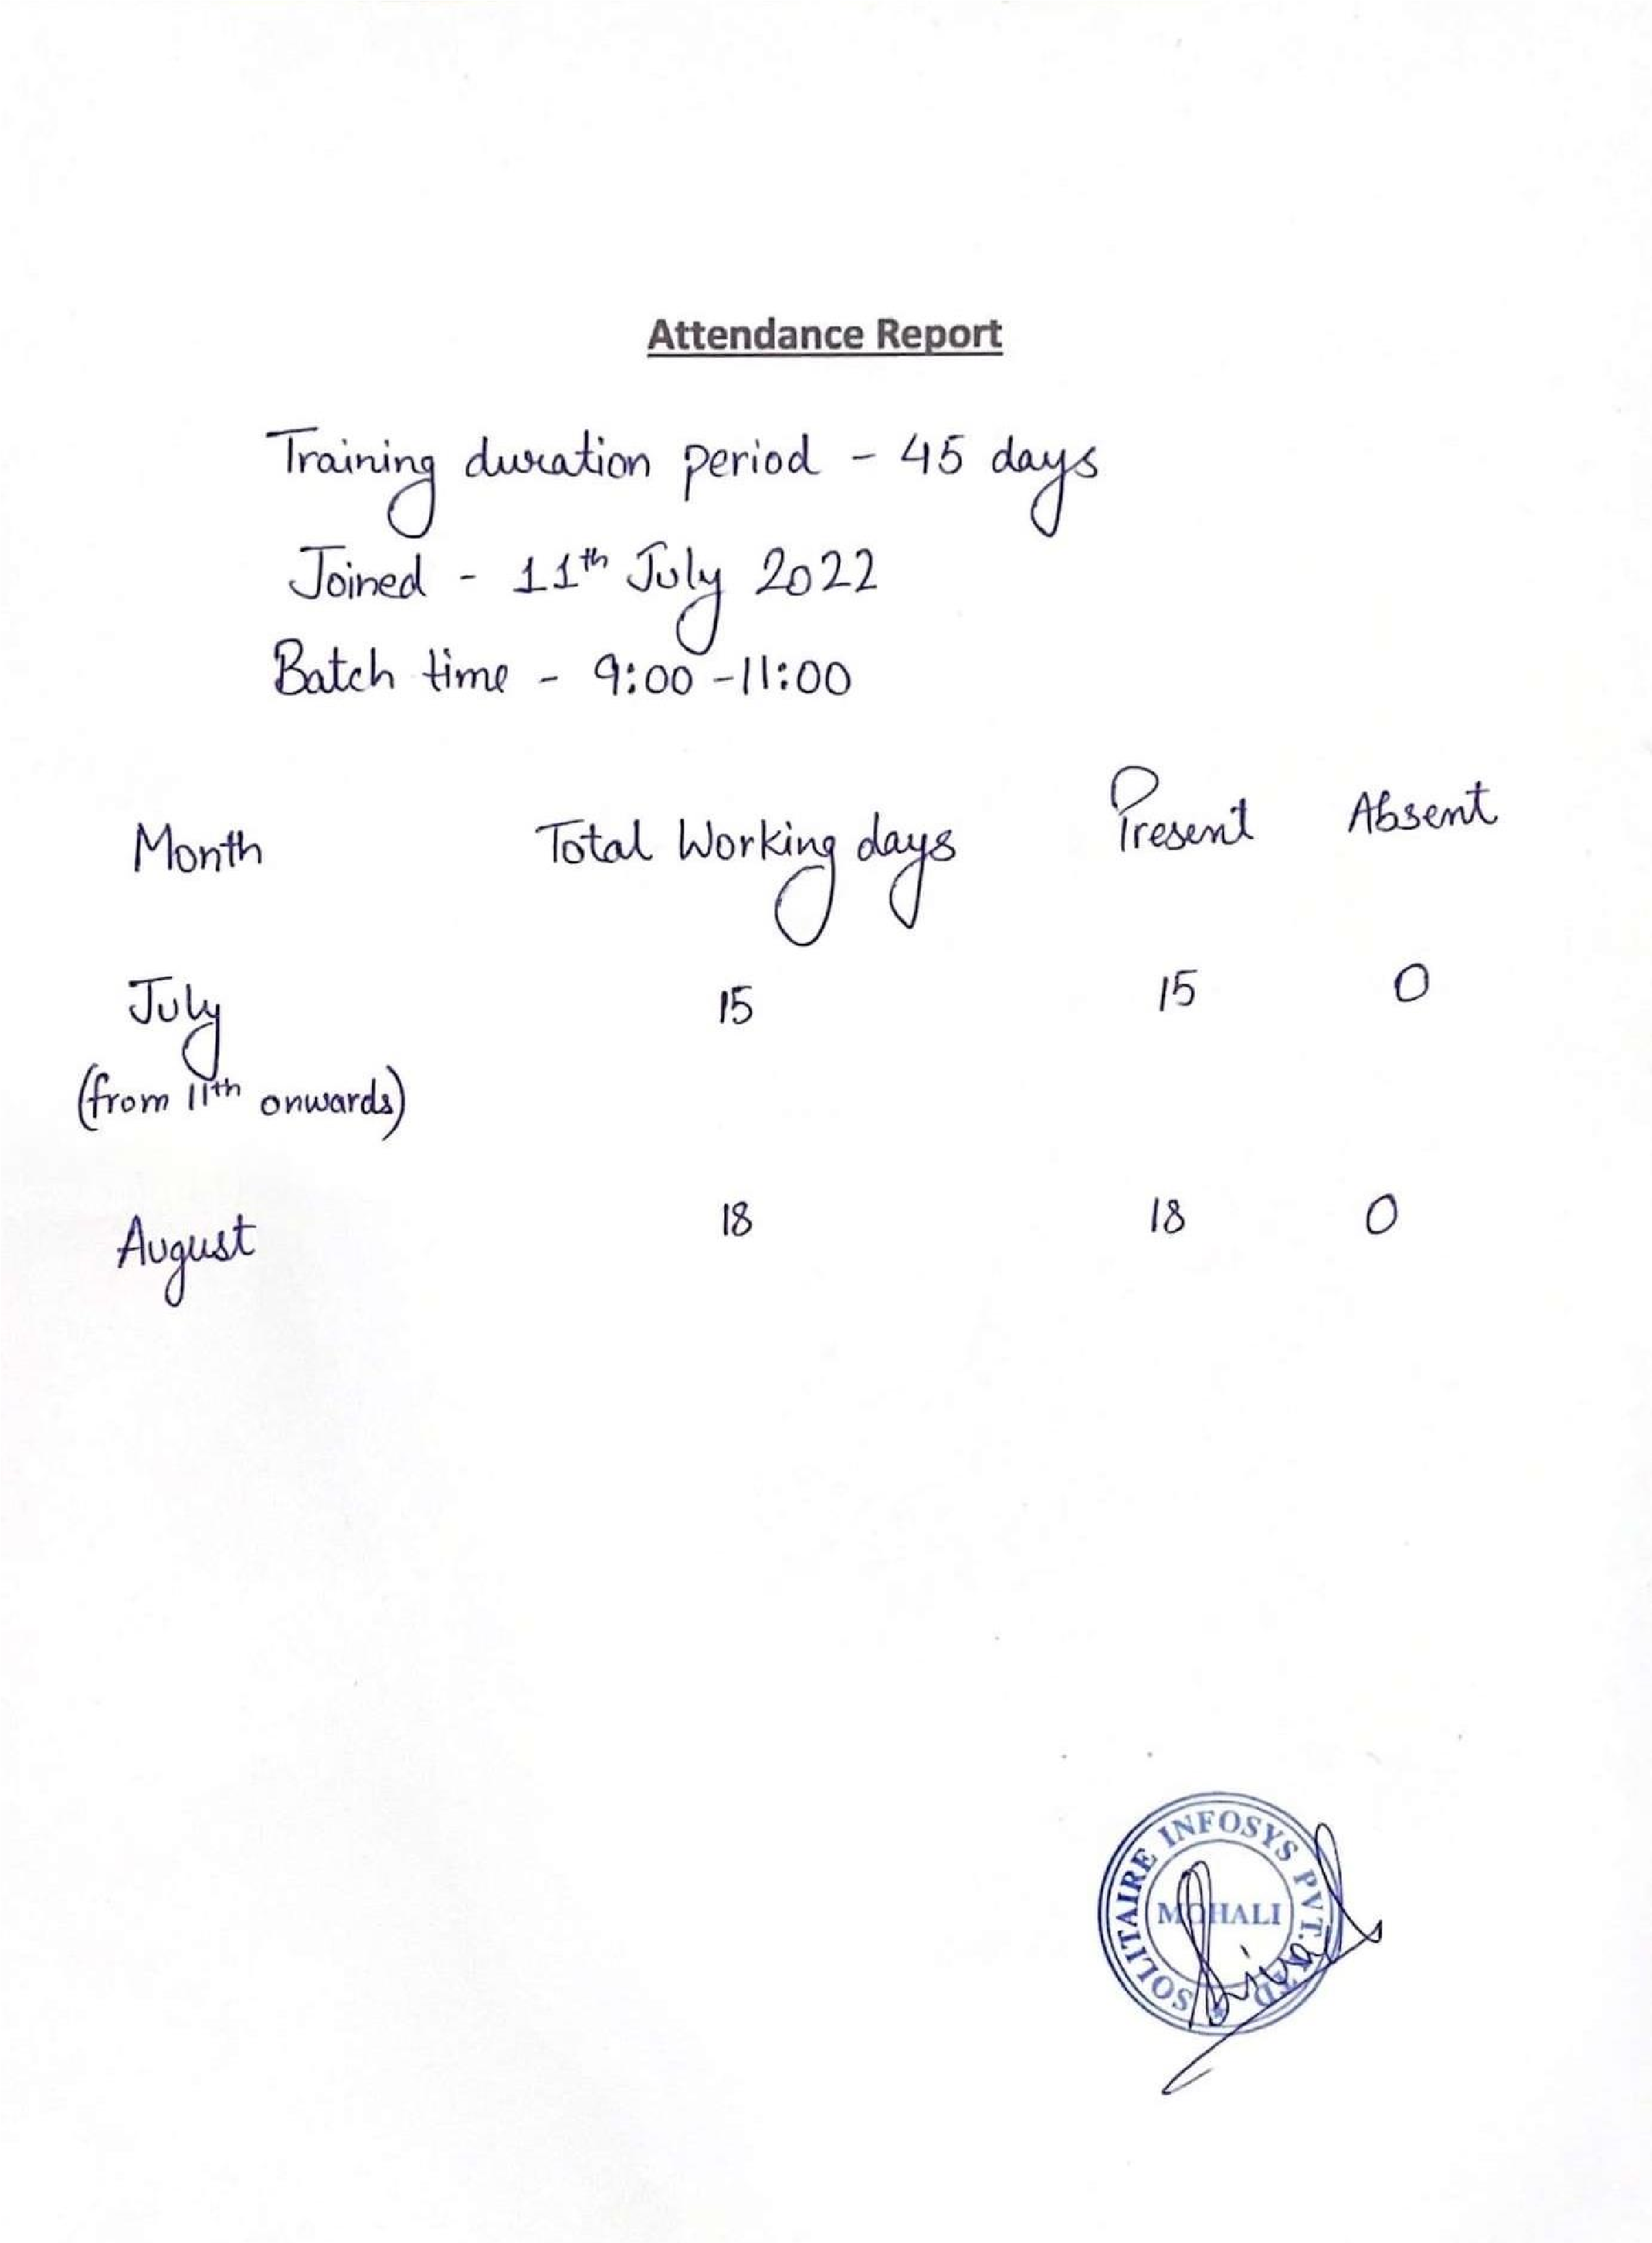 Attendance Report
Training duration period - 45 days
Joined - 11th July 2022
Batch time - 9:00 - 11:00
Month Total Working days Present Absent
July 15 15 0
(from 11th onwards)
August 18 18 0
SOLITAIRE INFOSYS PVT. LTD
MOHALI